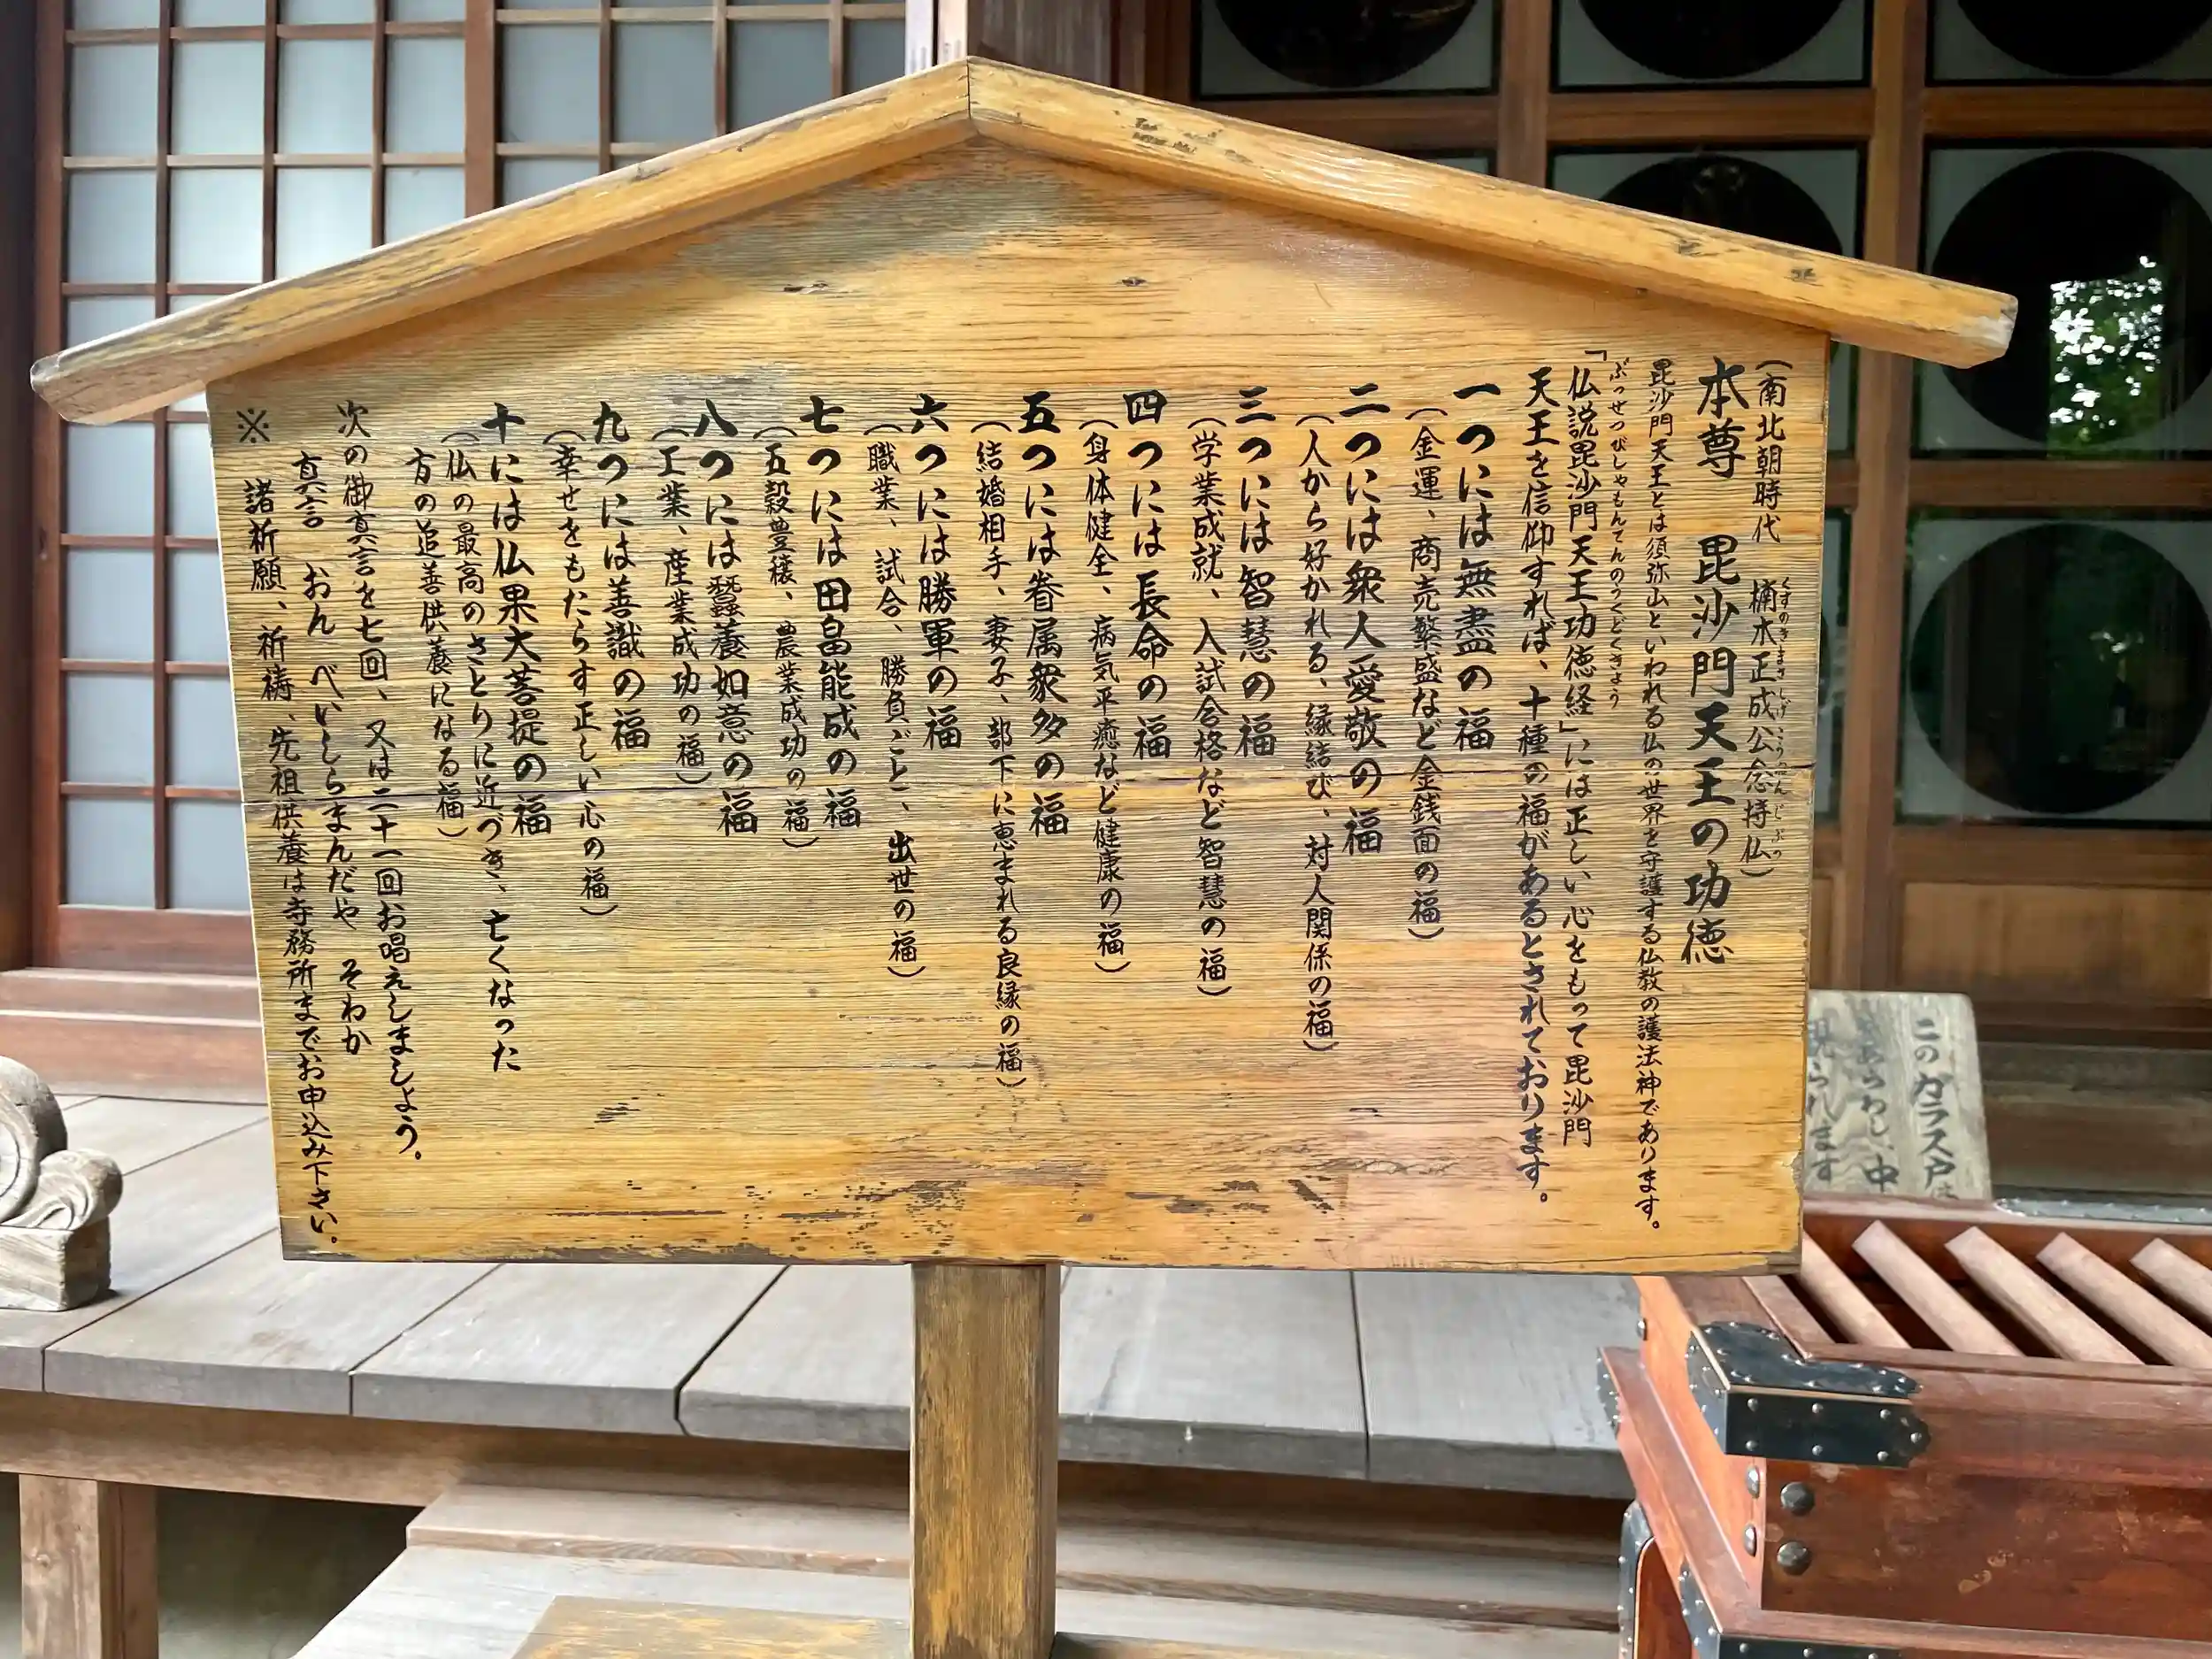 （南北朝時代　楠木正成公念持仏）
くすのきまさしげこうねんじぶつ
本尊　毘沙門天王の功徳
毘沙門天王とは須弥山といわれる仏の世界を守護する仏教の護法神であります。
ぶっせつびしゃもんてんのうくどくきょう
「仏説毘沙門天王功徳経」には正しい心をもって毘沙門
天王を信仰すれば、十種の福があるとされております。
一つには無盡の福
（金運、商売繁盛など金銭面の福）
二つには衆人愛敬の福
（人から好かれる、縁結び、対人関係の福）
三つには智慧の福
（学業成就、入試合格など智慧の福）
四つには長命の福
（身体健全、病気平癒など健康の福）
五つには眷属衆多の福
（結婚相手、妻子、部下に恵まれる良縁の福）
六つには勝軍の福
（職業、試合、勝負ごと、出世の福）
七つには田畠能成の福
（五穀豊穣、農業成功の福）
八つには蠶養如意の福
（工業、産業成功の福）
九つには善識の福
（幸せをもたらす正しい心の福）
十には仏果大菩提の福
（仏の最高のさとりに近づき、亡くなった
方の追善供養になる福）
次の御真言を七回、又は二十一回お唱えしましょう。
真言　おん　べいしらまんだや　そわか
※　諸祈願、祈祷、先祖供養は寺務所までお申込み下さい。
このガラス戸
中
られます